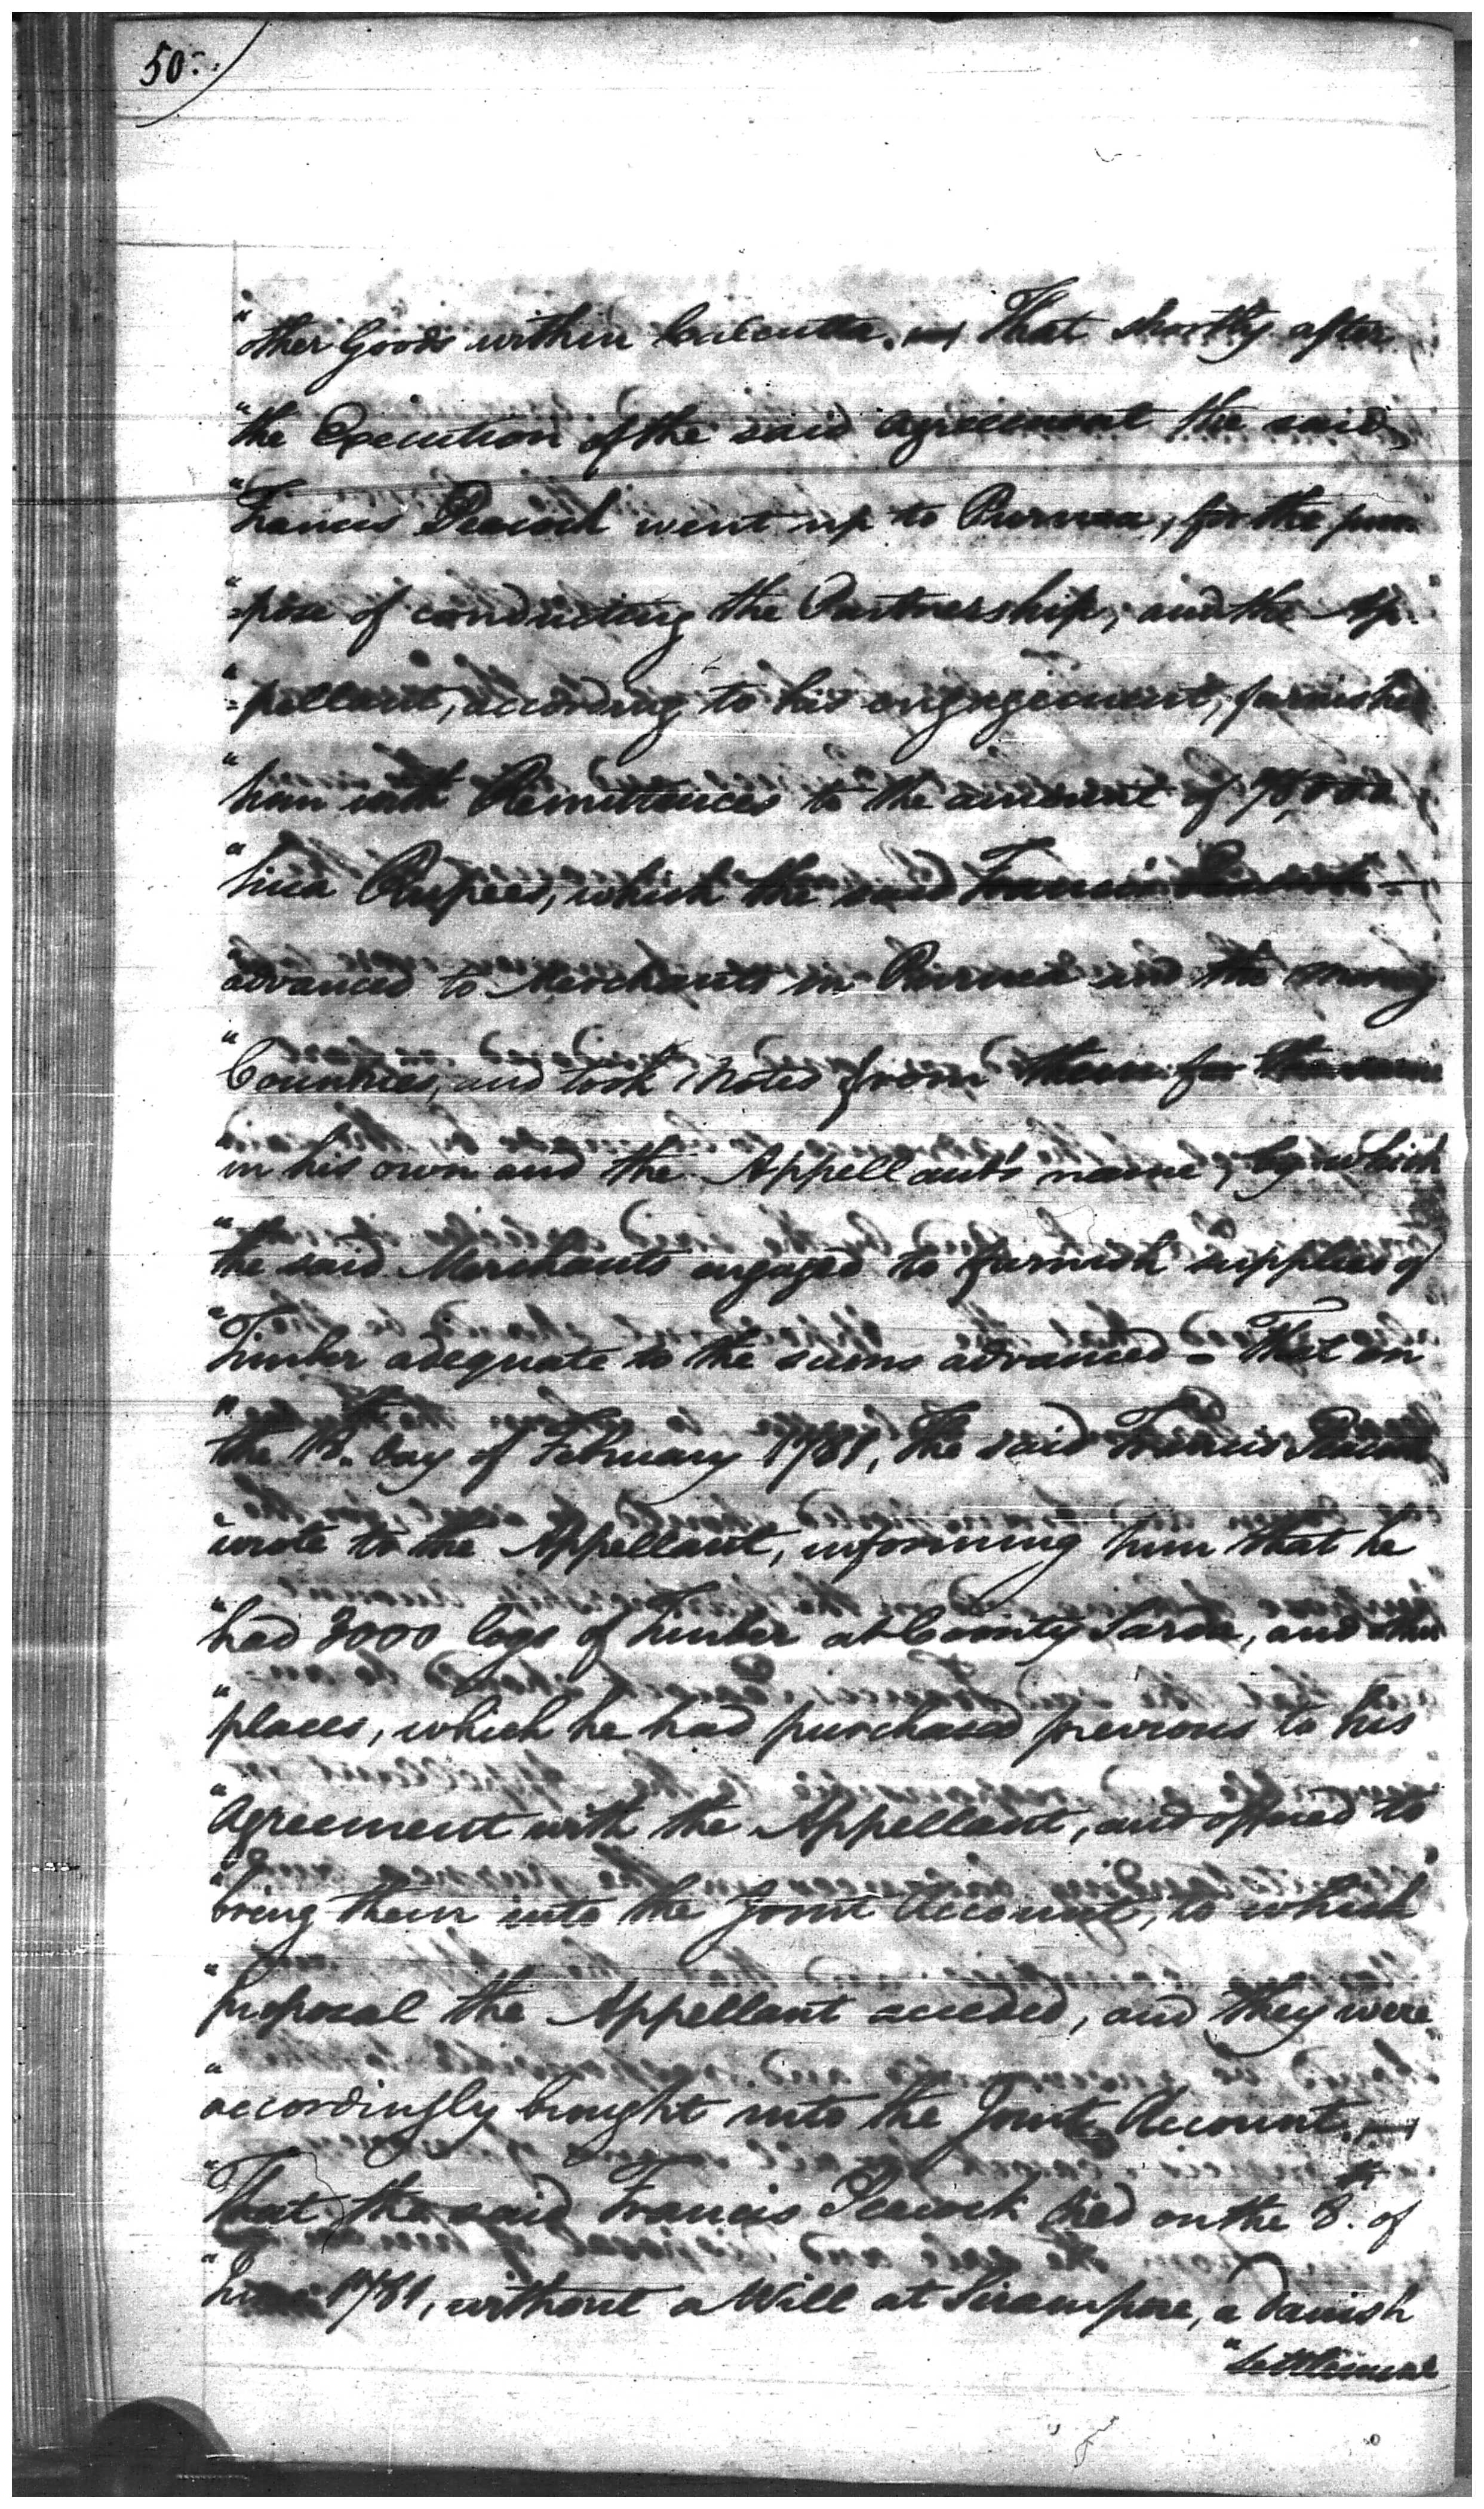 50
" other Goods within Calcutta. That shortly after
" the Execution of the said agreement the said
" Francis Peacock went up to Purnea, for the pur
" =pose of conducting the Partnership; and the Ap
" =pellant, according to his engagement, furnished
" him with Remittances to the amount of
" Sicca Rupees, which the said Francis Peacock =
" advanced to Merchants in Purnea and the
" Countries, and took Notes from them for the same
in his own and the Appellant's name, by which
" the said Merchants engaged to furnish supplies of
" Timber adequate to the sums advanced = That on
" the day of February 1781, the said Francis Peacock
" wrote to the Appellant, informing him that he
" had 3000 logs of Timber at and other
" places, which he had purchased previous to his
" Agreement with the Appellant, and offered to
" bring them into the Joint Account, to which
" proposal the Appellant acceded, and they were
" accordingly brought into the Joint Account. —
" That the said Francis Peacock died on the 8th. of
" 1781, without a Will at Serampore, a Danish
" Settlement